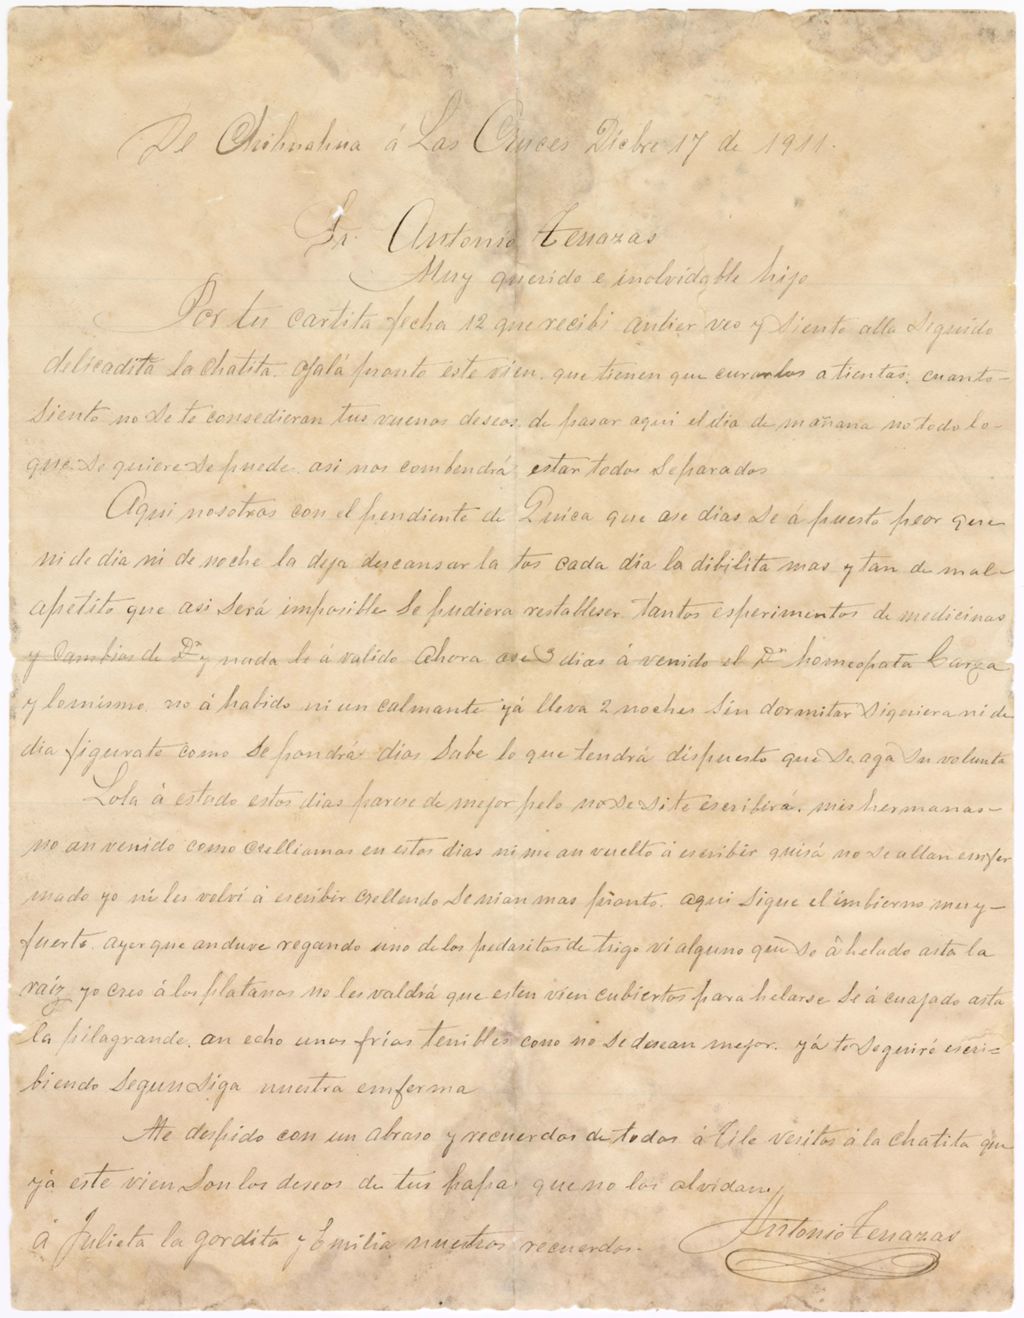 De Chihuahua á Las Cruces Dicbre 17 de 1911.
Sr. Antonio Terrazas
Muy querido e inolvidable hijo
Por tu cartita fecha 12 que recibi antier veo y siento alla seguido
delicadita la chatita. Ojalá pronto este vien. que tienen que curarlos atientas; cuanto-
siento no se te consedieran tus vuenos deseos de pasar aqui el dia de mañana no todo lo-
que se quiere se puede. asi nos combendrá estar todos separados
Aqui nosotros con el pendiente de Quica que ase dias se á puesto peor que
ni de dia ni de noche la deja descansar la tos cada dia la dibilita mas y tan de mal-
apetito que asi será imposible se pudiera restableser. tantos esperimentos de medicinas
y cambios de Dr. y nada le á valido ahora ase 3 dias á venido el Dr. homeopata Garza
y lo mismo. no á habido ni un calmante yá lleva 2 noches sin dormitar siquiera ni de
dia figurate como se pondrá dios sabe lo que tendrá dispuesto que se aga su volunta
Lola á estado estos dias parese de mejor pelo no se si te escribirá. mis hermanas-
no an venido como crelliamos en estos dias ni me an vuelto á escribir quisá no se allan enfer
mado yo ni les volvi á escribir crellendo se nian mas pronto. aqui sigue el imbierno muy-
fuerte. ayer que anduve regando uno de los pedasitos de trigo vi alguno que se á helado asta la
raiz yo creo á los platanos no les valdrá que esten vien cubiertos para helarse se á cuajado asta
la pila grande. an echo unos frios terribles como no se desean mejor. yá te seguiré escri=
biendo segun siga nuestra emferma
Me despido con un abraso y recuerdos de todos á Tile vesitos á la chatita que
yá este vien son los deseos de tus papas que no los olvidan
á Julieta la gordita y Emilia nuestros recuerdos.
Antonio Terrazas